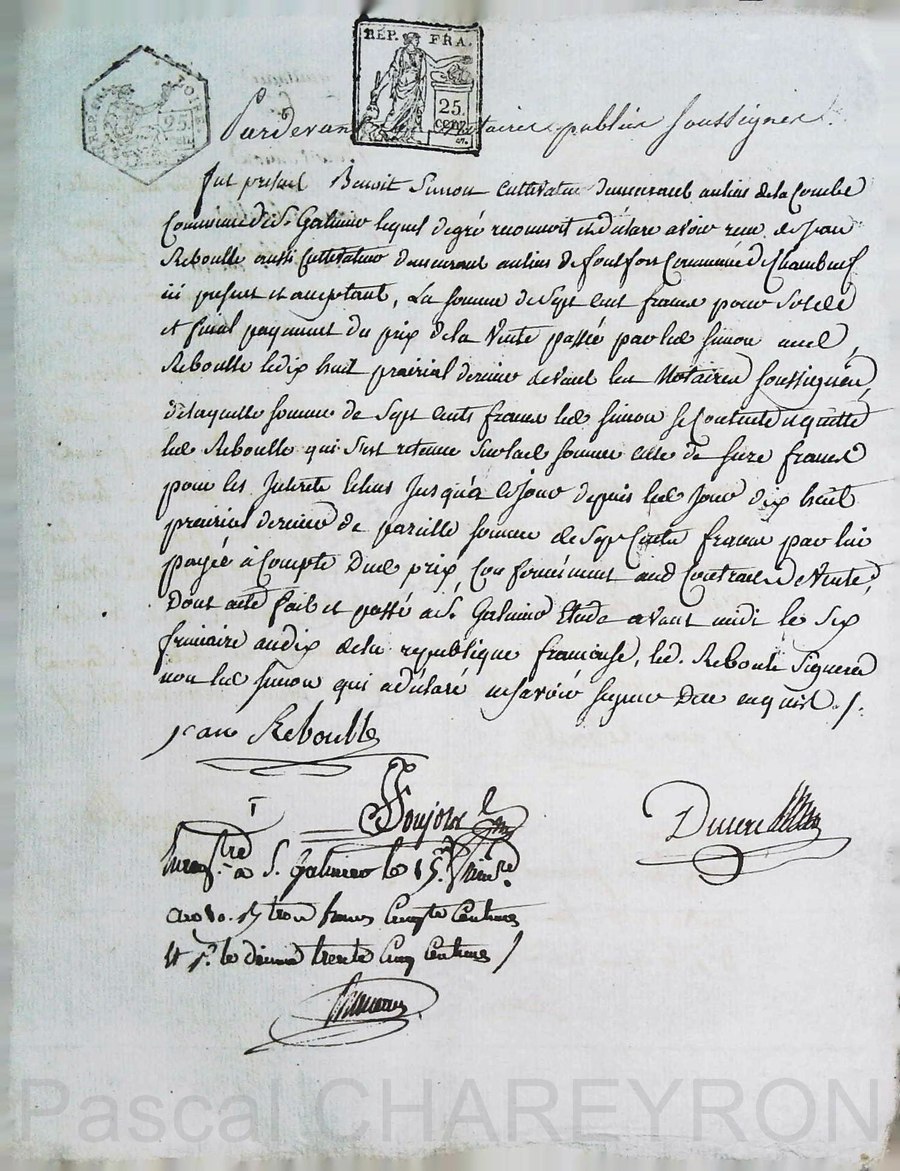 REP. FRA.
25
cent.
Pardevant les notaires publics soussignés
fut présent Benoit Simon cultivateur demeurant au lieu de la Combe
Commune de St. Galmier lequel de gré reconnoit et déclare avoir reçu de Jean
Reboulle aussi Cultivateur demeurant au lieu de Commune de Chambœuf
ici présent et acceptant, La somme de Sept cent francs pour Solde
et final payement du prix de la Vente passée par led Simon aud
Reboulle le dix huit prairial dernier devant les Notaires soussignés,
de laquelle somme de Sept cents francs led Simon se Contente et quitte
led Reboulle qui s'est retenu Sur lad somme celle de francs
pour les Intérêts échus Jusqu'à ce Jour depuis led Jour dix huit
prairial dernier de pareille somme de Sept Cents francs par lui
payée à Compte dud prix, Conformément aud Contract de Vente,
Dont acte fait et passé à St. Galmier Etude avant midi le six
frimaire an dix de la république française, led. Reboulle Signera
non led Simon qui a déclaré ne savoir signer De ce enquis ./.
jean Reboulle
Enregtré à St. galmier le 15 frimre
reçu trois francs Cinqte Centimes
et pr. le décime trente Cinq Centimes /
Pascal CHAREYRON